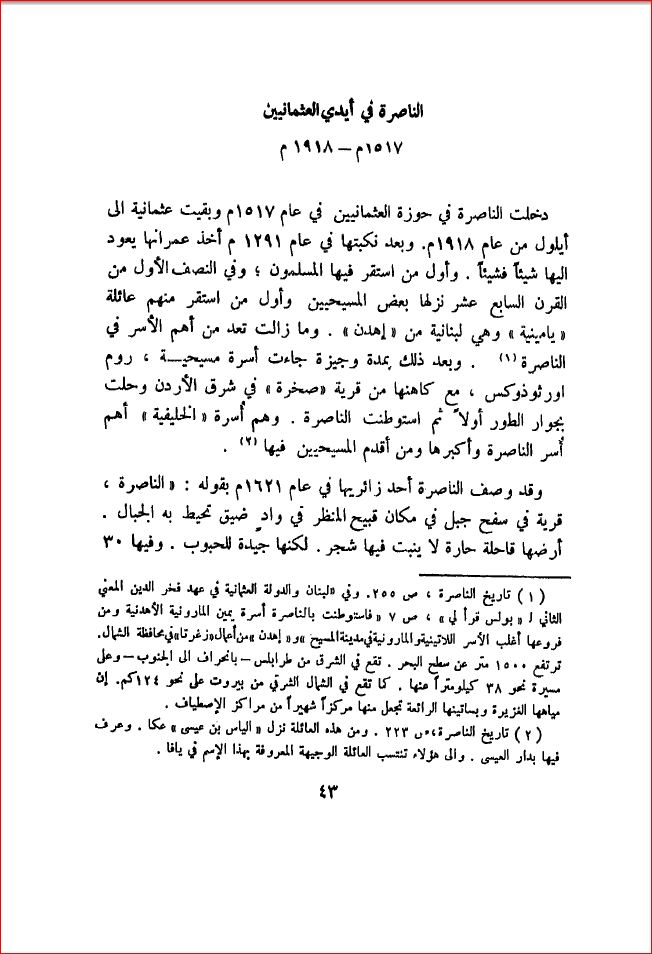 الناصرة في أيدي العثمانيين
١٥١٧م – ١٩١٨ م
دخلت الناصرة في حوزة العثمانيين في عام ١٥١٧م وبقيت عثمانية الى
أيلول من عام ١٩١٨م. وبعد نكبتها في عام ١٢٩١ م أخذ عمرانها يعود
اليها شيئاً فشيئاً . وأول من استقر فيها المسلمون ؛ وفي النصف الأول من
القرن السابع عشر نزلها بعض المسيحيين وأول من استقر منهم عائلة
« يامينية » وهي لبنانية من « إهدن » . وما زالت تعد من أهم الأسر في
الناصرة (١) . وبعد ذلك بمدة وجيزة جاءت أسرة مسيحيـــة ، روم
اورثوذوكس ، مع كاهنها من قرية «صخرة» في شرق الأردن وحلت
بجوار الطور أولاً ثم استوطنت الناصرة . وهم أُسرة « الخليفية » أهم
أُسر الناصرة وأكبرها ومن أقدم المسيحيين فيها (٢) .
وقد وصف الناصرة أحد زائريها في عام ١٦٢١م بقوله : « الناصرة ،
قرية في سفح جبل في مكان قبيح المنظر في وادٍ ضيق تحيط به الجبال .
أرضها قاحلة حارة لا ينبت فيها شجر . لكنها جيدة للحبوب . وفيها ٣٠
(١) تاريخ الناصرة ، ص ٢٥٥. وفي «لبنان والدولة العثمانية في عهد فخر الدين المعني
الثاني لـ « بولس قرأ لي » ، ص ٧ «فاستوطنت بالناصرة أسرة يمين المارونية الأهدنية ومن
فروعها أغلب الأسر اللاتينية والمارونية في مدينة المسيح » و « إهدن » من أعمال « زغرتا » في محافظة الشمال.
ترتفع ١٥٠٠ متر عن سطح البحر . تقع في الشرق من طرابلس – بانحراف الى الجنوب – وعلى
مسيرة نحو ٣٨ كيلومتراً عنها . كما تقع في الشمال الشرقي من بيروت على نحو ١٢٤كم. إن
مياهها الغزيرة وبساتينها الرائعة تجعل منها مركزاً شهيراً من مراكز الإصطياف .
(٢) تاريخ الناصرة، ص ٢٢٣ . ومن هذه العائلة نزل « الياس بن عيسى » عكا . وعرف
فيها بدار العيسى . والى هؤلاء تنتسب العائلة الوجيهة المعروفة بهذا الإسم في يافا .
٤٣